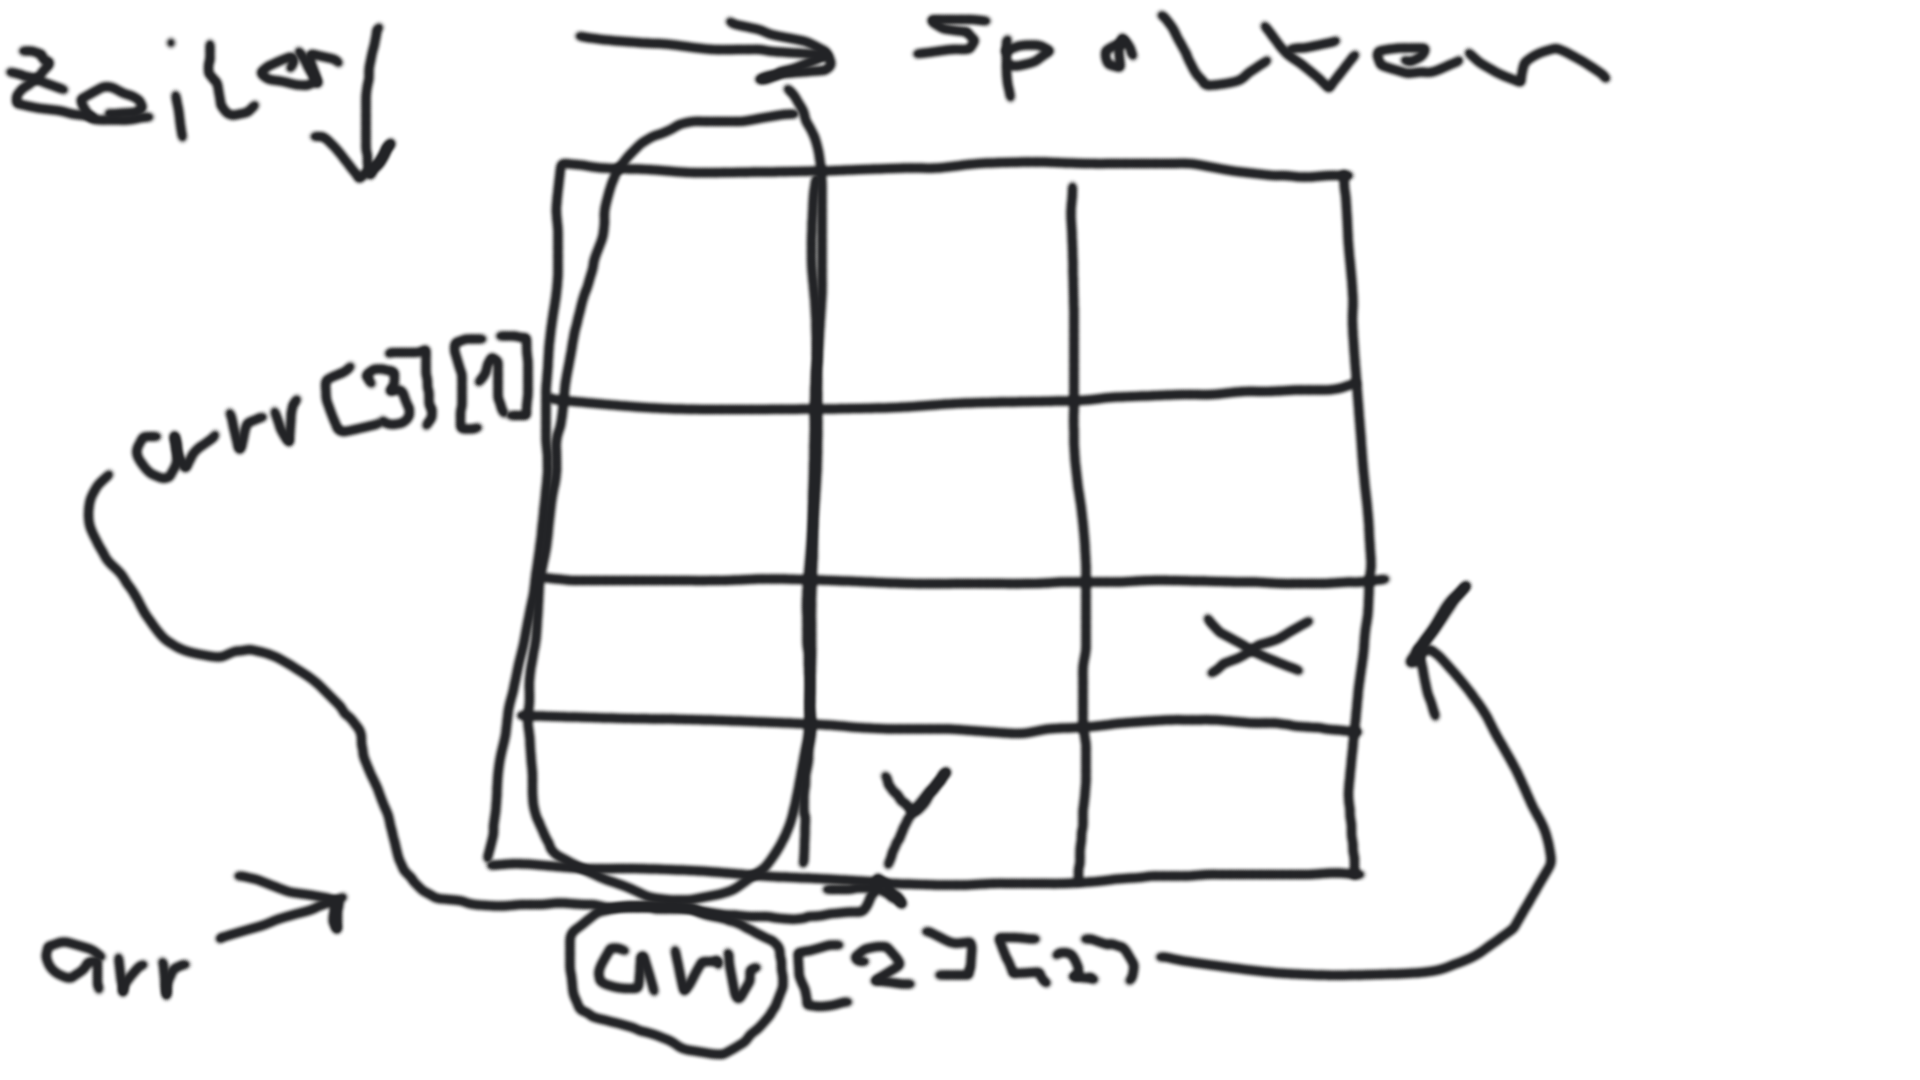 Zeilen
Spalten
arr [3][1]
X
Y
arr
arr [2][2]